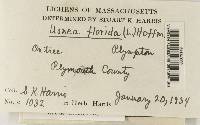 LICHENS OF MASSACHUSETTS
DETERMINED BY STUART K. HARRIS
Usnea florida (L.) Hoffm.
On tree Plympton
Plymouth County
Col. S K Harris
No. 1032 in Herb. Harris January 20, 1934